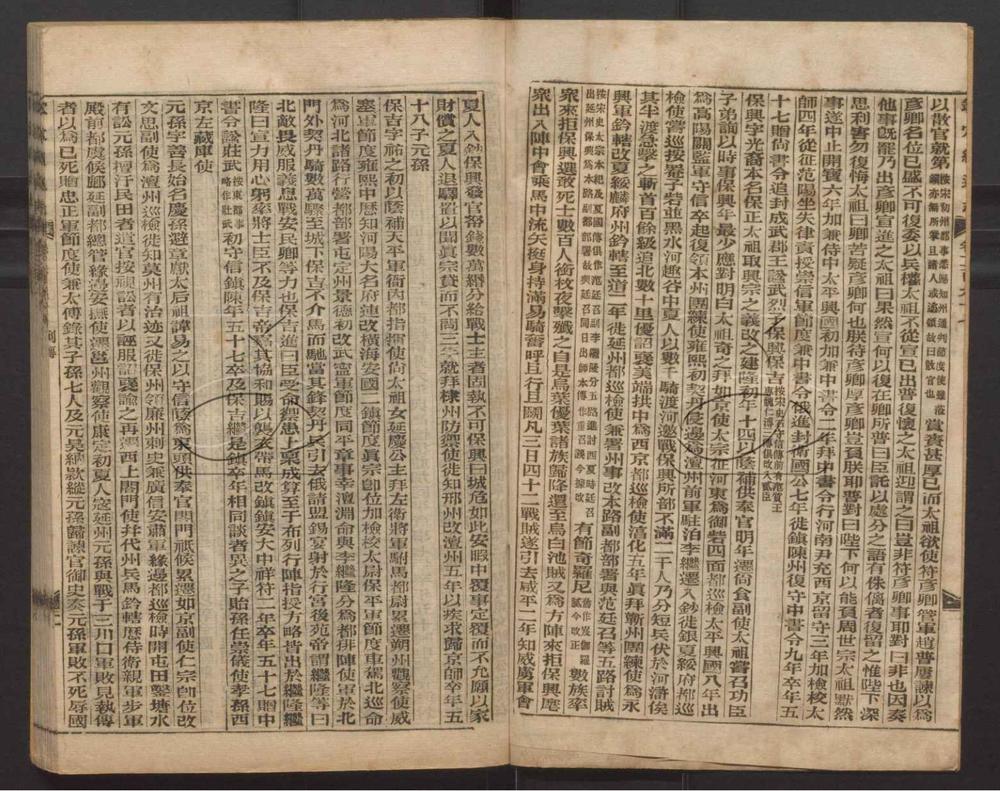 以散官就第
賞賚甚厚已而太祖欲使符彥卿管軍趙普屢諫以爲
彥卿名位已盛不可復委以兵權太祖不從宣已出普復懷之太祖迎謂之曰豈非符彥卿事耶對曰非也因奏
他事旣罷乃出彥卿宣進之太祖曰果然宣何以復在卿所普曰臣託以處分之語有侏僞者復留之惟陛下深
思利害勿復悔太祖曰卿苦疑彥卿何也朕待彥卿厚彥卿豈負朕耶普對曰陛下何以能負周世宗太祖默然
事遂中止開寶六年加兼侍中太平興國初加兼中書令二年拜中書令行河南尹充西京留守三年加檢校太
師四年從征范陽坐失律責授崇信軍節度兼中書令俄進封衛國公七年徙鎮陳州復守中書令九年卒年五
十七贈尚書令追封成武郡王諡武烈子保興保吉
保興字光裔本名保正太祖取興宗之義改之建隆初年十四以蔭補供奉官明年遷尚食副使太祖嘗召功臣
子弟詢以時事保興年最少應對明白太祖奇之拜如京使太宗征河東爲御砦四面都巡檢太平興國八年出
爲高陽關監軍守信卒起復領本州團練使雍熙初契丹侵邊爲澶州前軍駐泊李繼遷入鈔徙銀夏綏府都巡
檢使嘗巡按菴子砦並黑水河趣谷中夏人以數千騎渡河邀戰保興所部不滿二千人乃分短兵伏於河滸俟
其半渡急擊之斬首百餘級追北數十里優詔褒美端拱中爲西京都巡檢使淳化五年眞拜蘄州團練使爲永
興軍鈐轄改夏綏麟府州鈐轄至道二年徙延州都巡檢使兼署州事改本路副都部署與范廷召等五路討賊
有節奇羅尼數族率
衆來拒保興選敢死士數百人銜枚夜擊殲之自是烏葉優葉諸族歸降還至烏白池賊又爲方陣來拒保興麾
衆出入陣中會乘馬中流矢挺身持滿易騎奮呼且行且鬭凡三日四十二戰賊遂引去咸平二年知威虜軍會
夏人入鈔保興發官帑錢數萬緡分給戰士主者固執不可保興曰城危如此安暇中覆事定覆而不允願以家
財償之夏人退驛置以聞眞宗貰而不問三年就拜棣州防禦使徙知邢州改澶州五年以疾求歸京師卒年五
十八子元孫
保吉字祐之初以蔭補天平軍衙內都指揮使尙太祖女延慶公主拜左衛將軍駙馬都尉累遷朔州觀察使威
塞軍節度雍熙中歷知河陽大名府連改橫海安國二鎮節度眞宗卽位加檢校太尉保平軍節度車駕北巡命
爲河北諸路行營都部署屯定州景德初改武寧軍節度同平章事幸澶淵命與李繼隆分爲都排陣使軍於北
門外契丹騎數萬驟至城下保吉不介馬而馳當其鋒契丹民引去俄請盟錫宴射於行宮後苑帝謂繼隆等曰
北敵畏威服義息戰安民卿等力也保吉進曰臣受命禦患上稟成算至于布列行陣指授方略皆出於繼隆繼
隆曰宣力用心躬率將士臣不及保吉帝嘉其協和賜以襲衣帶馬改鎮鎮安大中祥符二年卒年五十七贈中
書令諡莊武
初守信鎮陳年五十七卒及保吉繼是鎮卒年相同談者異之子貽孫任崇儀使孝孫西
京左藏庫使
元孫字善長始名慶孫避章獻太后祖諱易之以守信蔭爲東頭供奉官閤門祇候累遷如京副使仁宗卽位改
文思副使爲澶州巡檢徙知莫州有治迹又徙保州領廉州刺史兼廣信安肅軍緣邊都巡檢時開屯田鑿塘水
有訟元孫擅汙民田者遣官按視訟者以誣服詔襃諭之再遷西上閤門使幷代州兵馬鈐轄歷侍衛親軍步軍
殿前都虞候鄜延副都總管緣邊安撫使遷邕州觀察使康定初夏人寇延州元孫與戰于三川口軍敗見執傳
者以爲已死贈忠正軍節度使兼太傅錄其子孫七人及元昊納款縱元孫歸諫官御史奏元孫軍敗不死辱國